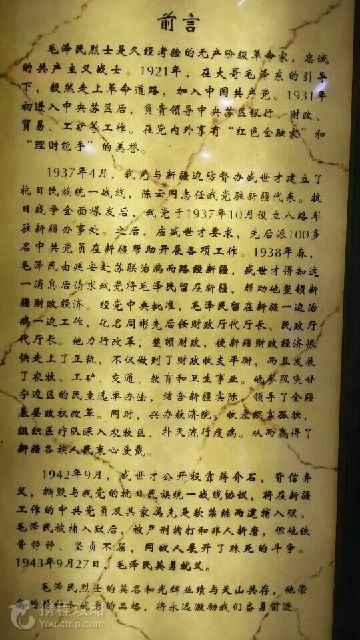 前言
毛泽民烈士是久经考验的无产阶级革命家，忠诚
的共产主义战士。1921年，在大哥毛泽东的引导
下，毅然走上革命道路，加入中国共产党。1931年
初进入中央苏区后，负责领导中央苏区银行、财政、
贸易、工矿等工作。在党内外享有“红色金融家”和
“理财能手”的美誉。
1937年4月，我党与新疆边防督办盛世才建立了
抗日民族统一战线，陈云同志任我党驻新疆代表。抗
日战争全面爆发后，我党于1937年10月设立八路军
驻新疆办事处。之后，应盛世才要求，先后派100多
名中共党员在新疆帮助开展各项工作。1938年春，
毛泽民由延安赴苏联治病而路经新疆，盛世才得知这
一消息后请求我党将毛泽民留在新疆，帮助他整顿新
疆财政经济。经党中央批准，毛泽民留在新疆一边治
病一边工作，化名周彬先后任财政厅代厅长、民政厅
代厅长。他力行改革，整顿财政，使新疆财政经济很
快走上了正轨，不仅做到了财政收支平衡，而且发展
了农牧、工矿、交通、教育和卫生事业。他参照陕甘
宁边区的民主选举办法，结合新疆实际，领导了全疆
基层政权改革。同时，兴办救济院，收养鳏寡孤独，
组织医疗队深入农牧区，扑灭流行疫病。从而赢得了
新疆各族人民衷心爱戴。
1942年9月，盛世才公开投靠蒋介石，背信弃
义，撕毁与我党的抗日民族统一战线协议，将在新疆
工作的中共党员及其家属先是软禁继而逮捕入狱。
毛泽民被捕入狱后，被严刑拷打和非人折磨，但他铁
骨铮铮、坚贞不屈，同敌人展开了殊死的斗争。
1943年9月27日，毛泽民英勇就义。
毛泽民烈士的英名和光辉业绩与天山共存，他崇
高的精神和的品格，将永远激励我们奋勇前进。
携程攻略
You.ctrip.com